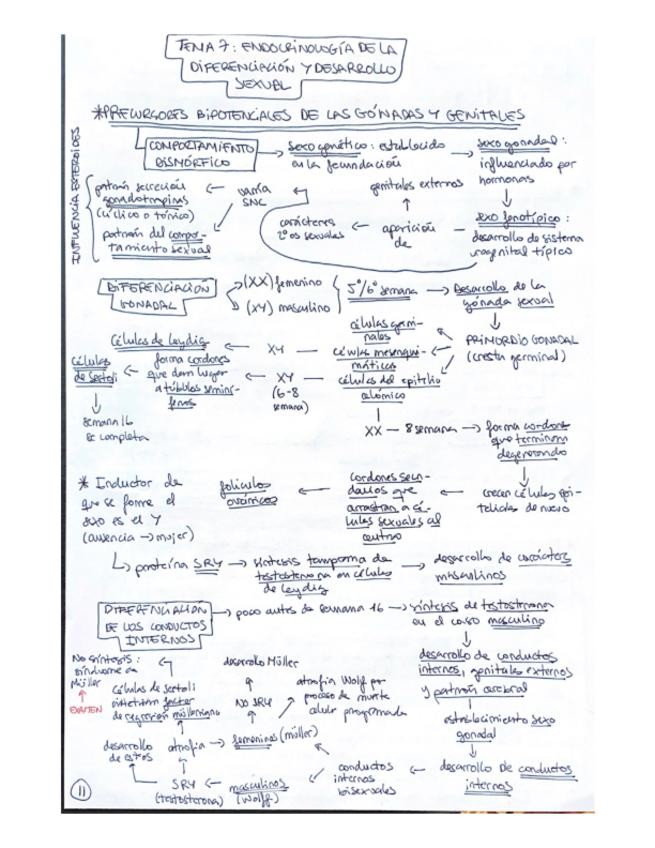 TEMA 7: ENDOCRINOLOGÍA DE LA
DIFERENCIACIÓN Y DESARROLLO
SEXUAL
*PRECURSORES BIPOTENCIALES DE LAS GÓNADAS Y GENITALES
INFLUENCIA ESTEROIDES
COMPORTAMIENTO
DISMÓRFICO
Sexo genético: establecido
en la fecundación
Sexo gonadal:
influenciado por
hormonas
sexo fenotípico:
desarrollo de sistema
urogenital típico
aparición
de
genitales externos
carácteres
2ºos sexuales
varía
SNC
patrón secreción
gonadotropinas
(cíclico o tónico)
patrón del compor-
tamiento sexual
DIFERENCIACIÓN
GONADAL
(XX) femenino
(XY) masculino
5ª/6ª semana
Desarrollo de la
gónada sexual
PRIMORDIO GONADAL
(cresta germinal)
células germi-
nales
células mesenqui-
máticas
células del epitelio
celómico
XY
Células de Leydig
XY
(6-8
semana)
forma cordones
que dan lugar
a túbulos seminí-
feros
células
de Sertoli
semana 16
se completa
XX — 8 semana
forma cordones
que terminan
degenerando
crecen células epi-
teliales de nuevo
cordones secun-
darios que
arrastran a cé-
lulas sexuales al
centro
folículos
ováricos
* Inductor de
que se forme el
sexo es el Y
(ausencia → mujer)
proteína SRY
síntesis temprana de
testosterona en células
de Leydig
desarrollo de carácteres
masculinos
DIFERENCIACIÓN
DE LOS CONDUCTOS
INTERNOS
poco antes de semana 16
síntesis de testosterona
en el caso masculino
desarrollo de conductos
internos, genitales externos
y patrón cerebral
establecimiento sexo
gonadal
desarrollo de conductos
internos
conductos
internos
bisexuales
femeninos (müller)
NO SRY
desarrollo Müller
atrofia Wolf por
proceso de muerte
celular programada
masculinos
(Wolff)
SRY
(testosterona)
atrofia
desarrollo
de estos
células de Sertoli
sintetizan factor
de regresión mülleriano
No síntesis:
síndrome de
Müller
EXAMEN
11